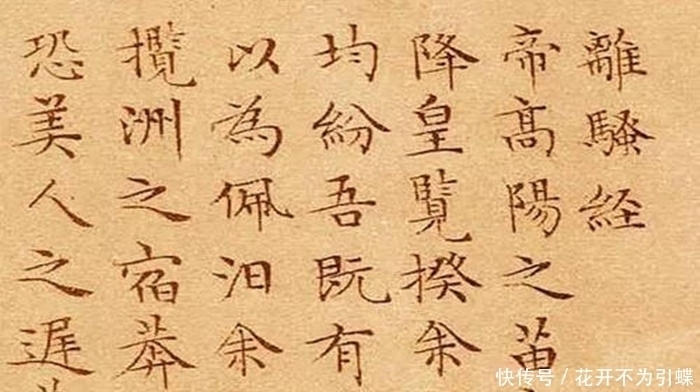 離騷経
帝高陽之苗
降皇覽揆余
均紛吾既有
以為佩汨余
攬洲之宿莽
恐美人之遲
快传号/花开不为引蝶